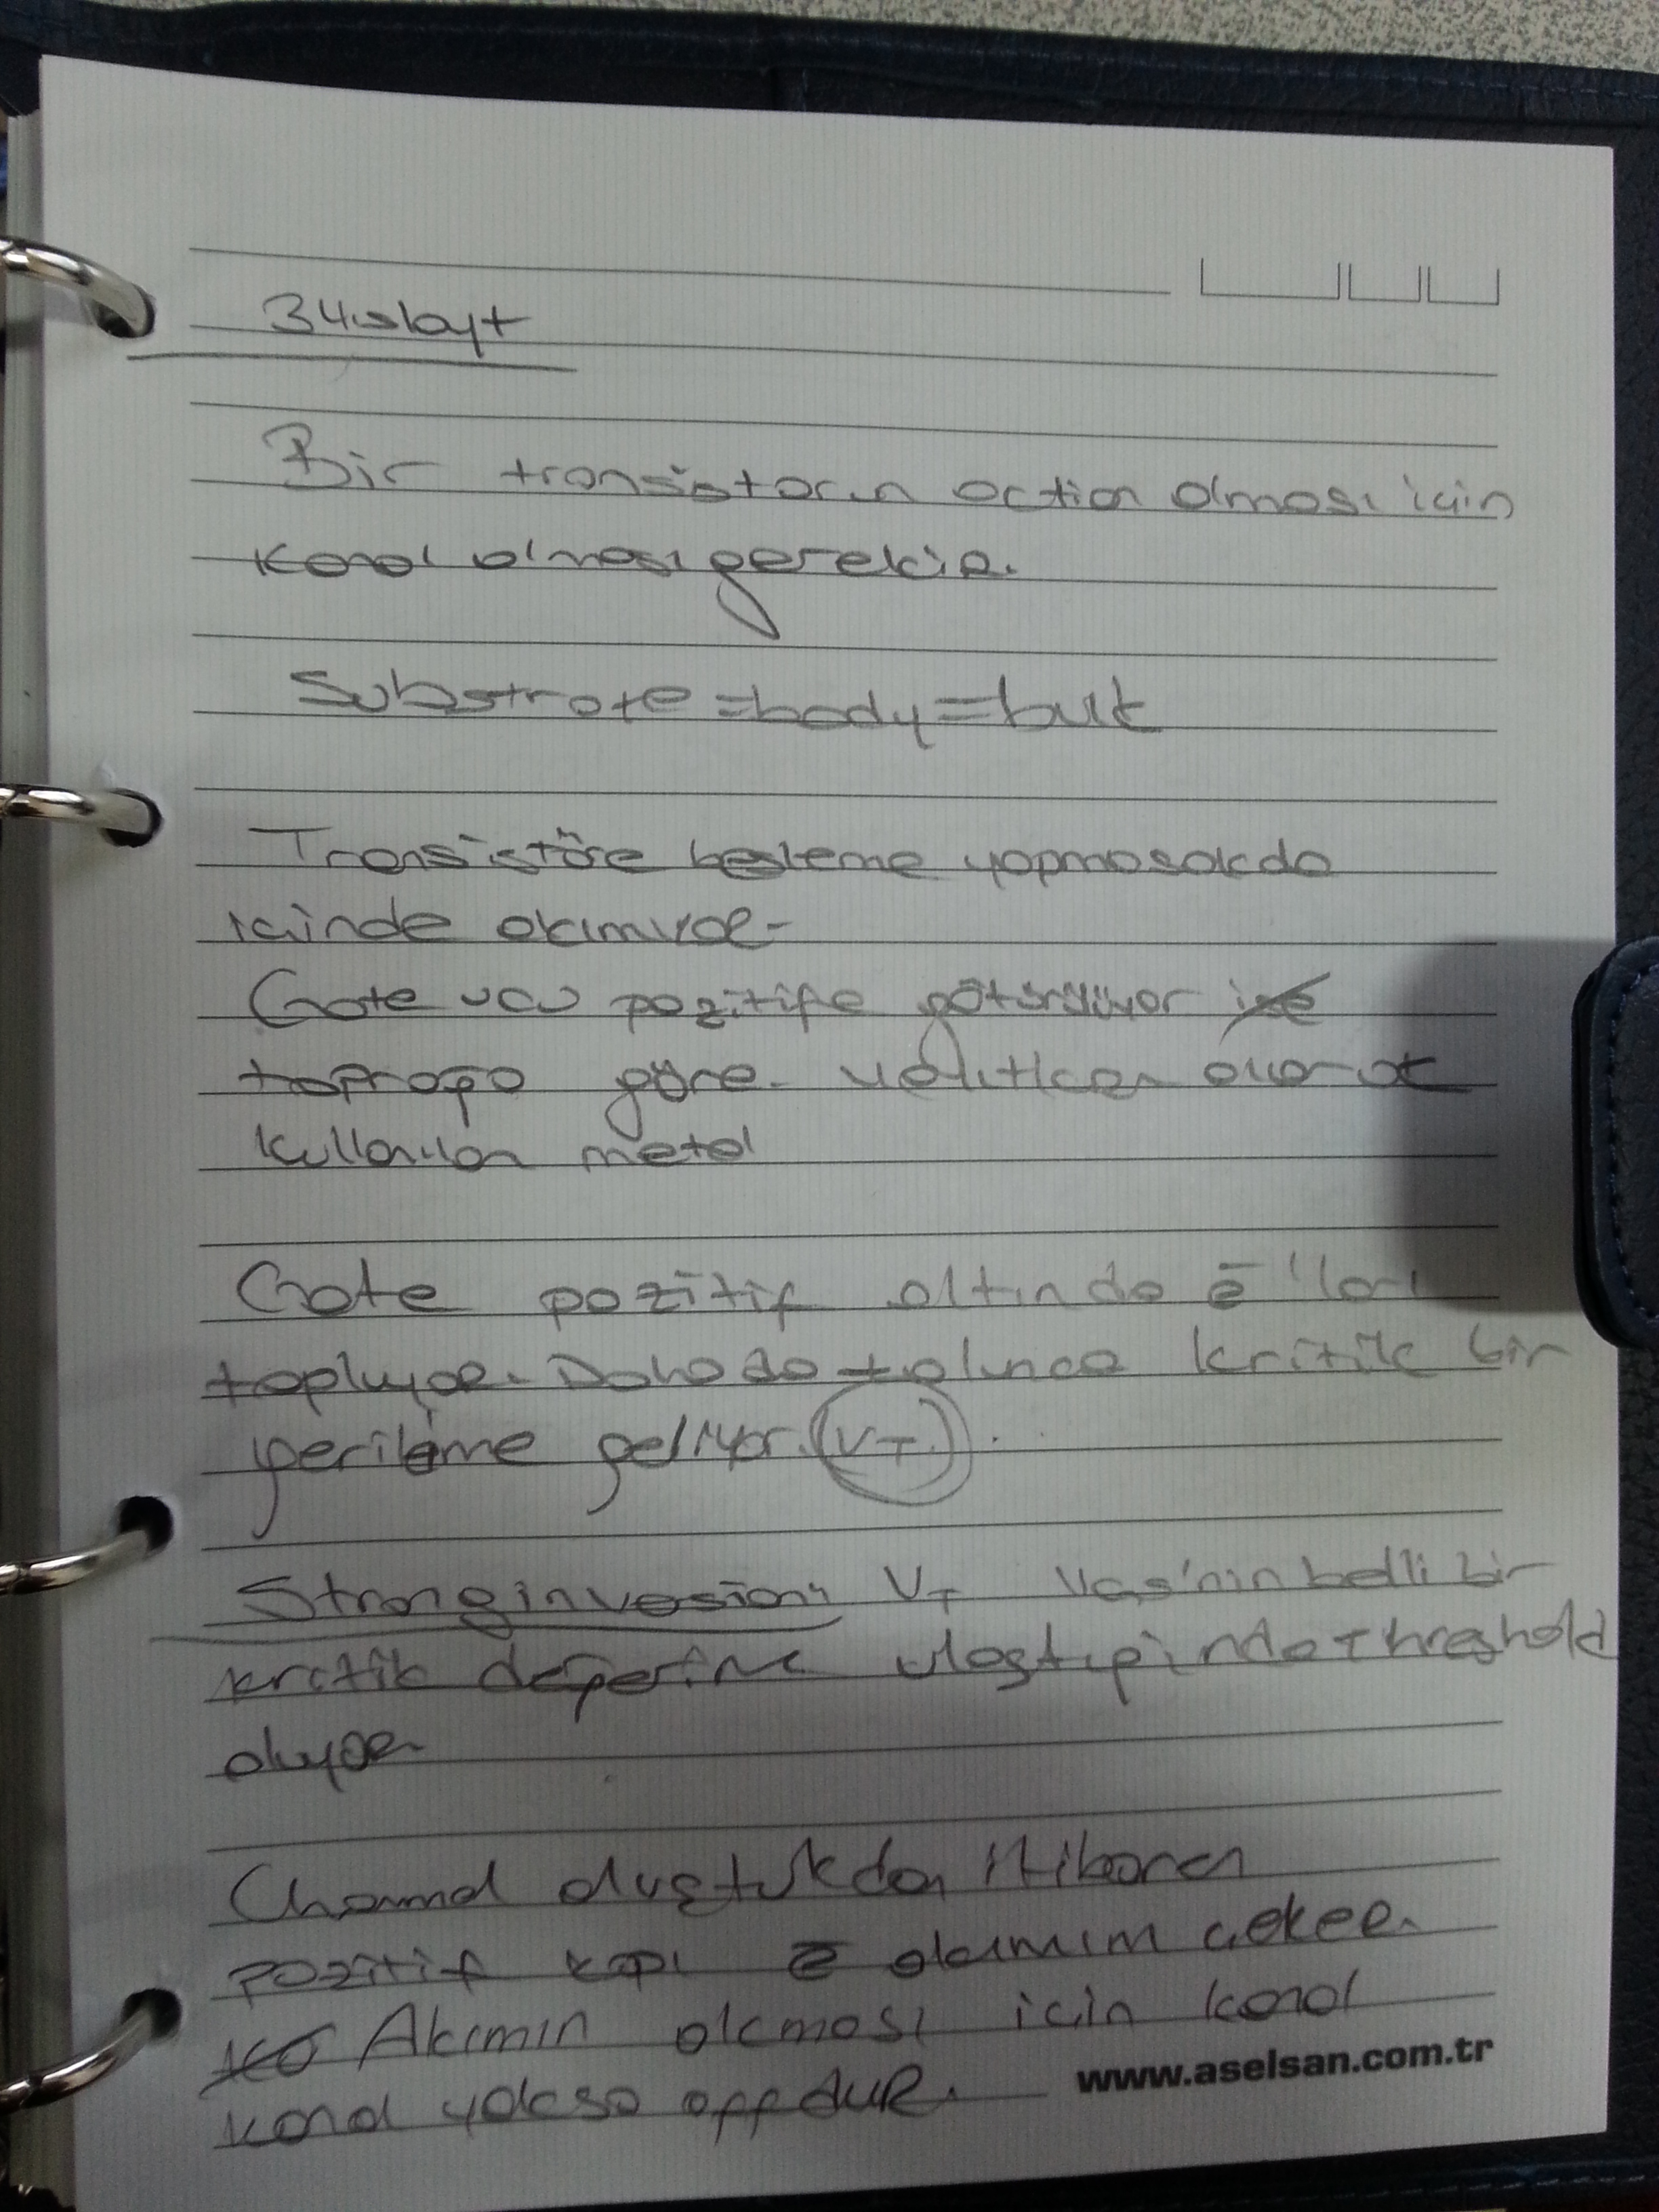 34.slayt
Bir transistorın action olması için
Kanal olması gerekir.
Substrate = body = bulk
Transistöre besleme yapmasakda
içinde akım var.
Gate ucu pozitife götürülüyor ise
toprağa göre. Yalıtkan olarak
kullanılan metal
Gate pozitif altında e⁻'ları
topluyor. Daha da tolunca kritik bir
gerilime geliyor. (VT)
Strong inversion: VT VGS'nin belli bir
kritik değerine ulaştığında threshold
oluyor.
Channel oluştukdan itibaren
pozitif kapı e⁻ akımım çeker.
Akımın akması için kanal
kanal yoksa offdur.
www.aselsan.com.tr